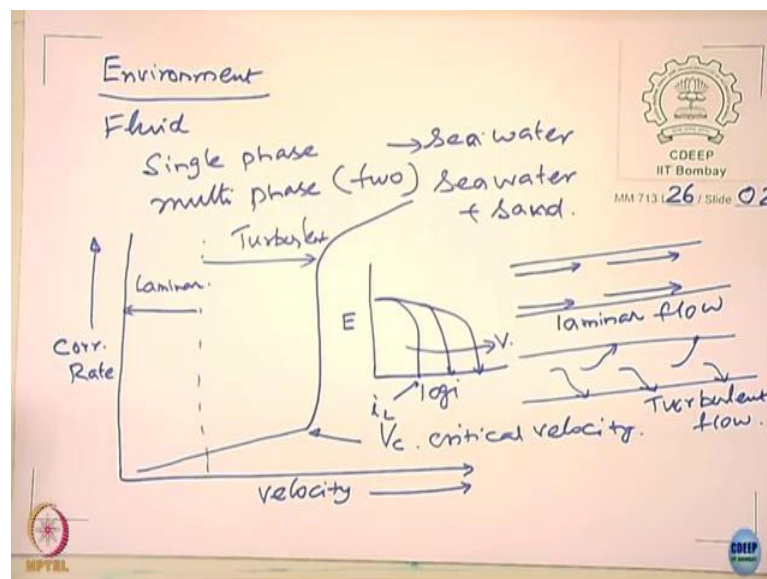 Environment
Fluid
Single phase → sea water
multi phase (two) sea water
+ sand.
CDEEP
IIT Bombay
MM 713 L 26 / Slide 02
Turbulent
Laminar.
Corr.
Rate
E
V.
iL
logi
laminar flow
Turbulent
flow.
Vc. critical velocity.
velocity
NPTEL
CDEEP